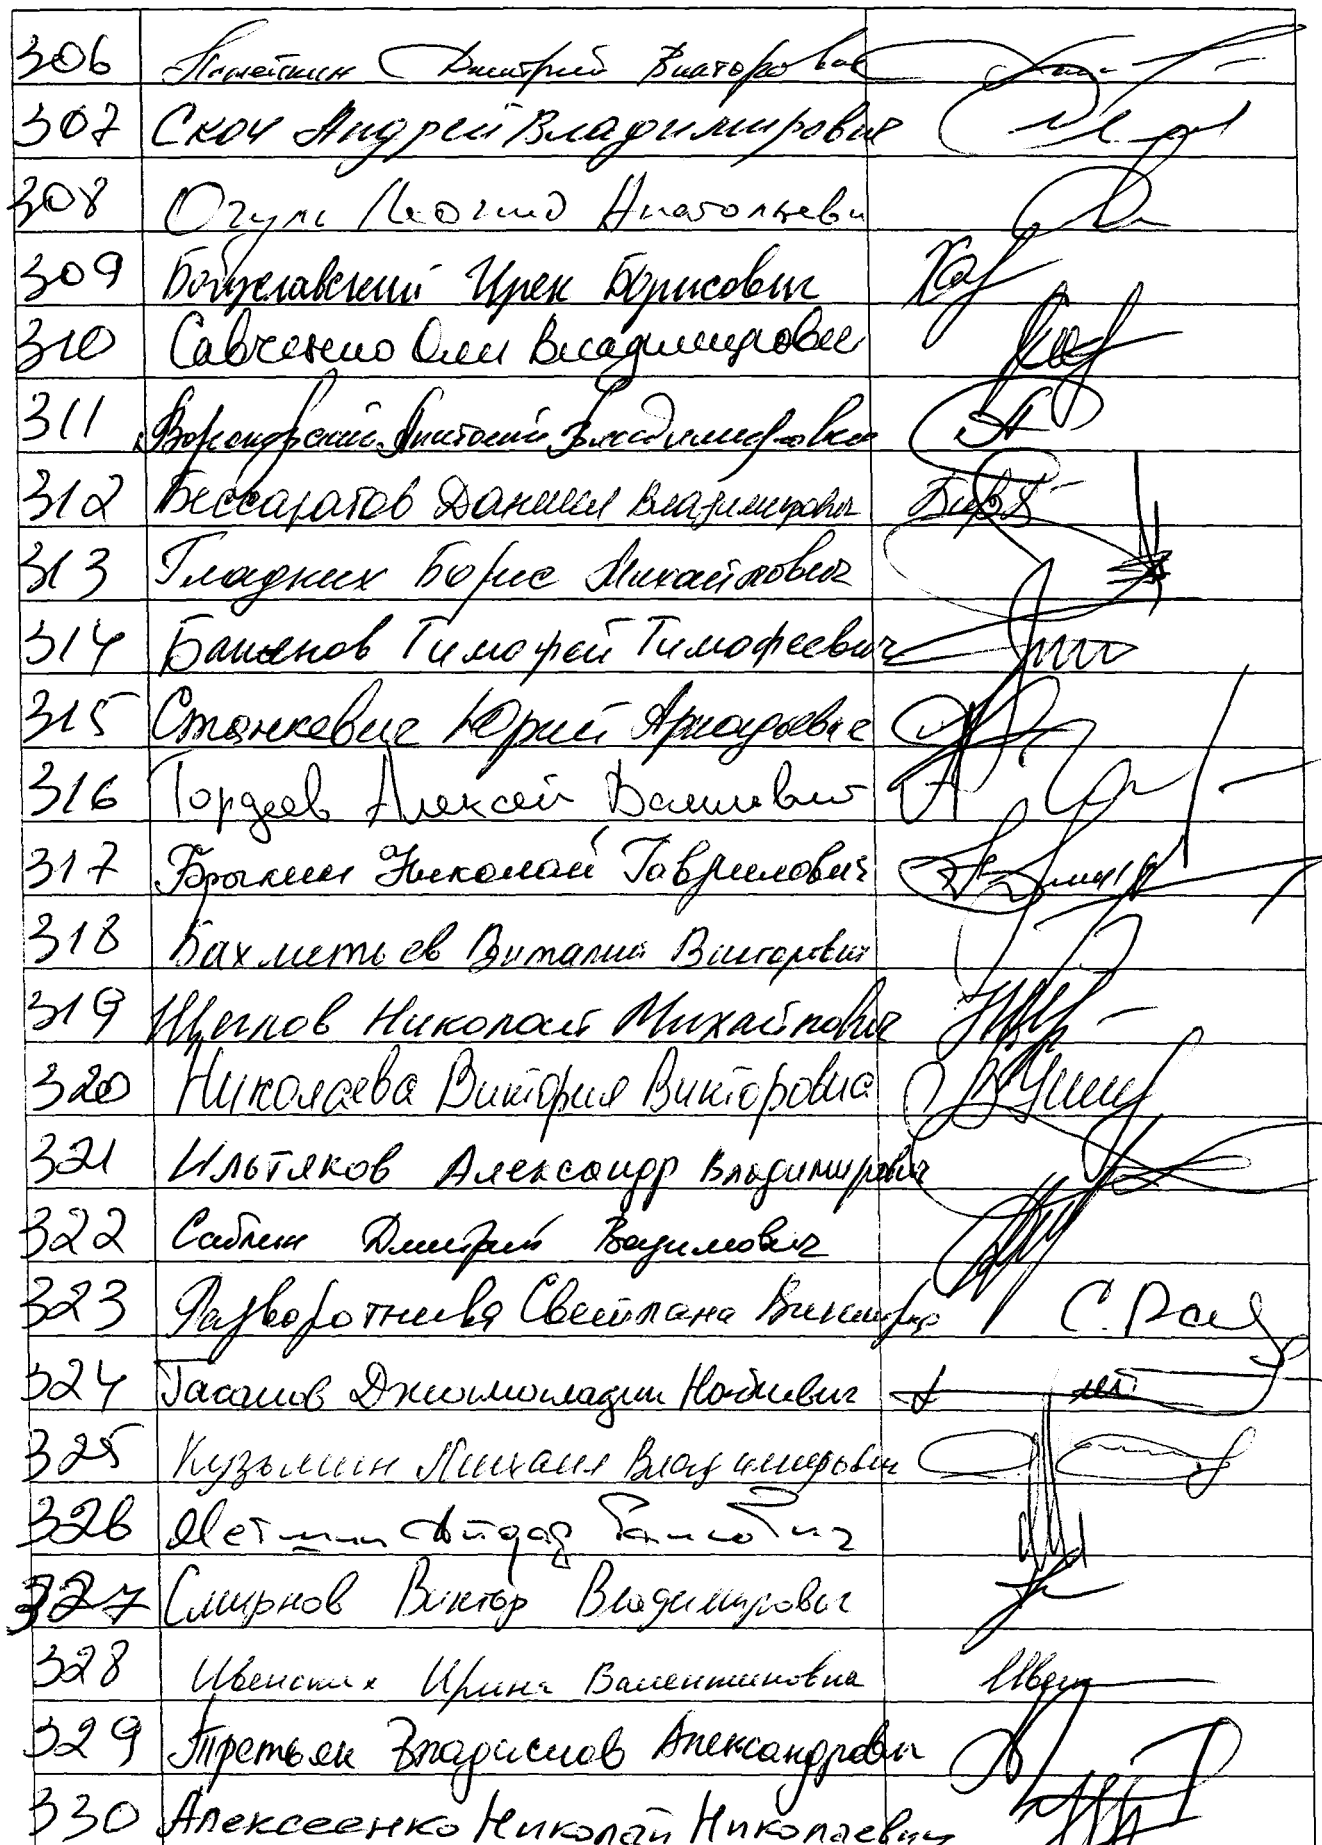 306 Дмитрий Викторович
307 Скоч Андрей Владимирович
308 Огуль Леонид Анатольеви
309 Богуславский Ирек Борисович
310 Савченко Олег Владимирович
311 Воронцовский Анатолий Владимирович
312 Бессарабов Даниил Владимирович
313 Гладких Борис Михайлович
314 Баженов Тимофей Тимофеевич
315 Станкевич Юрий Аркадьевич
316 Гордеев Алексей Васильевич
317 Брыкин Николай Гаврилович
318 Бахметьев Виталий Викторович
319 Щеглов Николай Михайлович
320 Николаева Виктория Викторовна
321 Ильтяков Александр Владимирович
322 Саблин Дмитрий Вадимович
323 Разворотнева Светлана Викторовна С. Раз
324 Гасанов Джамаладин Набиевич
325 Кузьмин Михаил Владимирович
326 Метшин Айдар Раисович
327 Смирнов Виктор Владимирович
328 Ивенских Ирина Валентиновна Ивен
329 Третьяк Владислав Александрович
330 Алексеенко Николай Николаевич